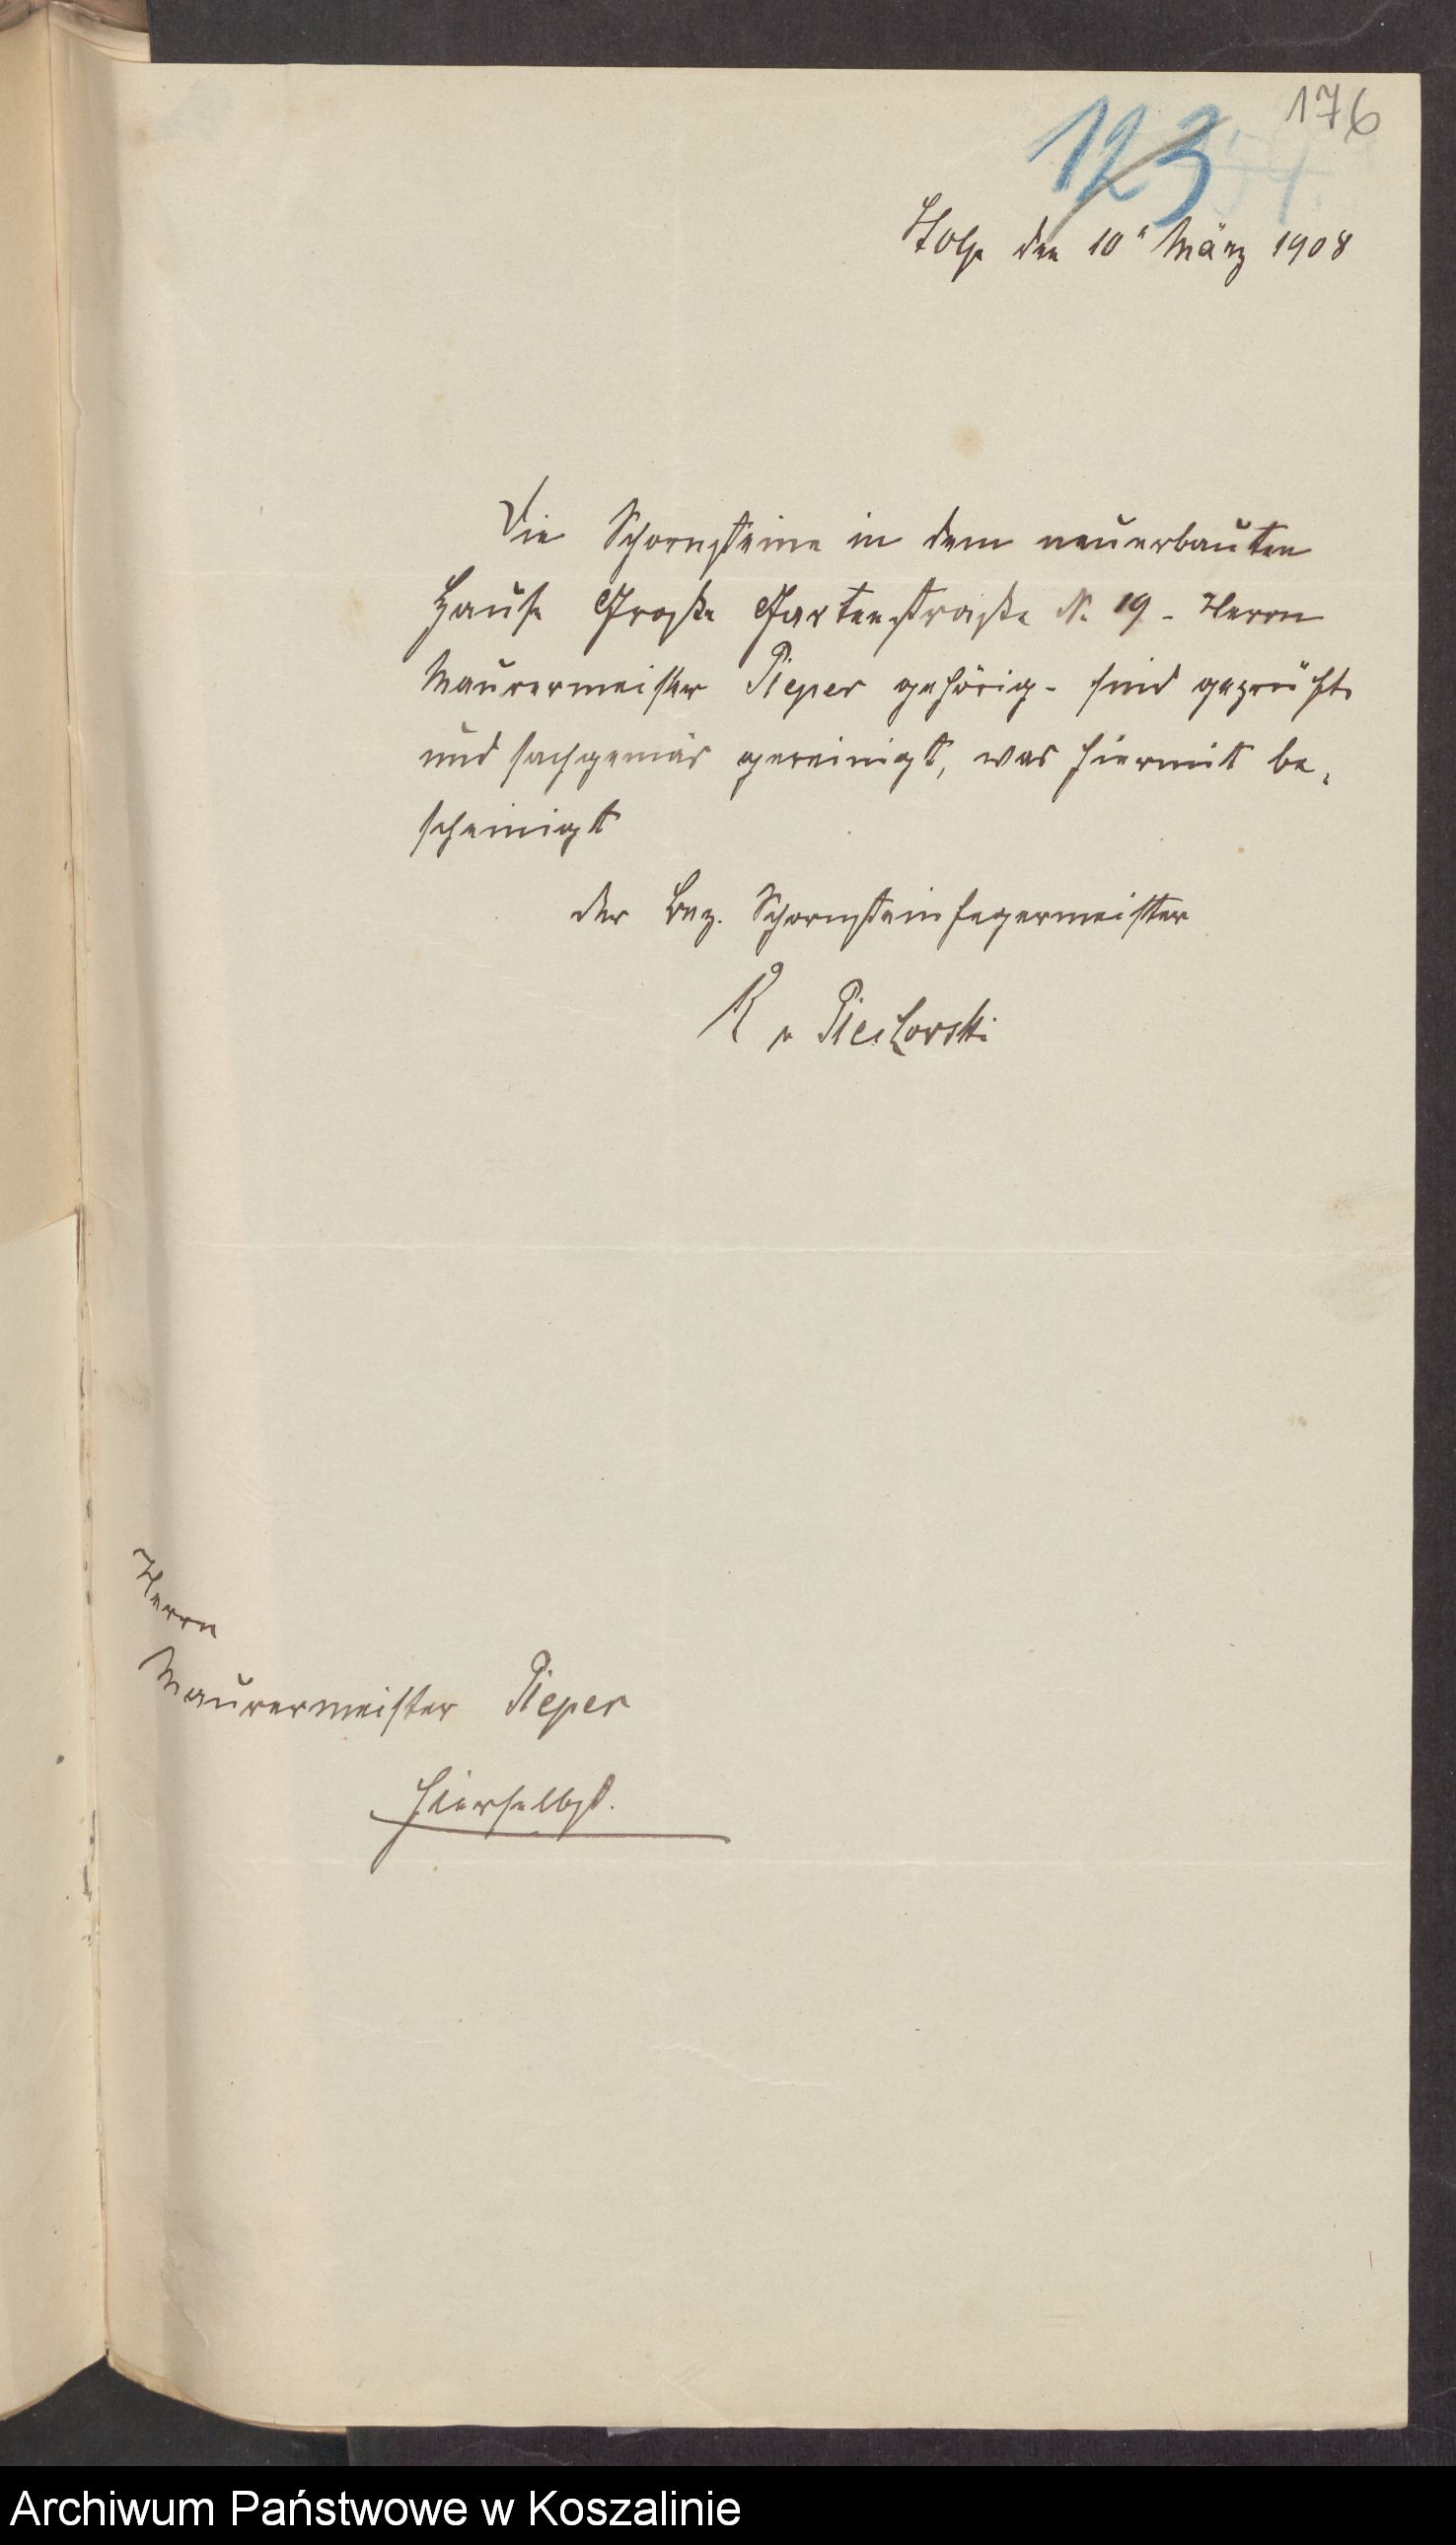 176
123
Stolp den 10" März 1908
Die Schornsteine in dem neuerbauten
Hause Große Gartenstraße N. 19 - Herrn
Maurermeister Pieper gehörig - sind geprüft
und sachgemäs gereinigt, was hiermit be-
scheinigt
der Bez. Schornsteinfegermeister
R v
Herrn
Maurermeister Pieper
hierselbst.
Archiwum Państwowe w Koszalinie